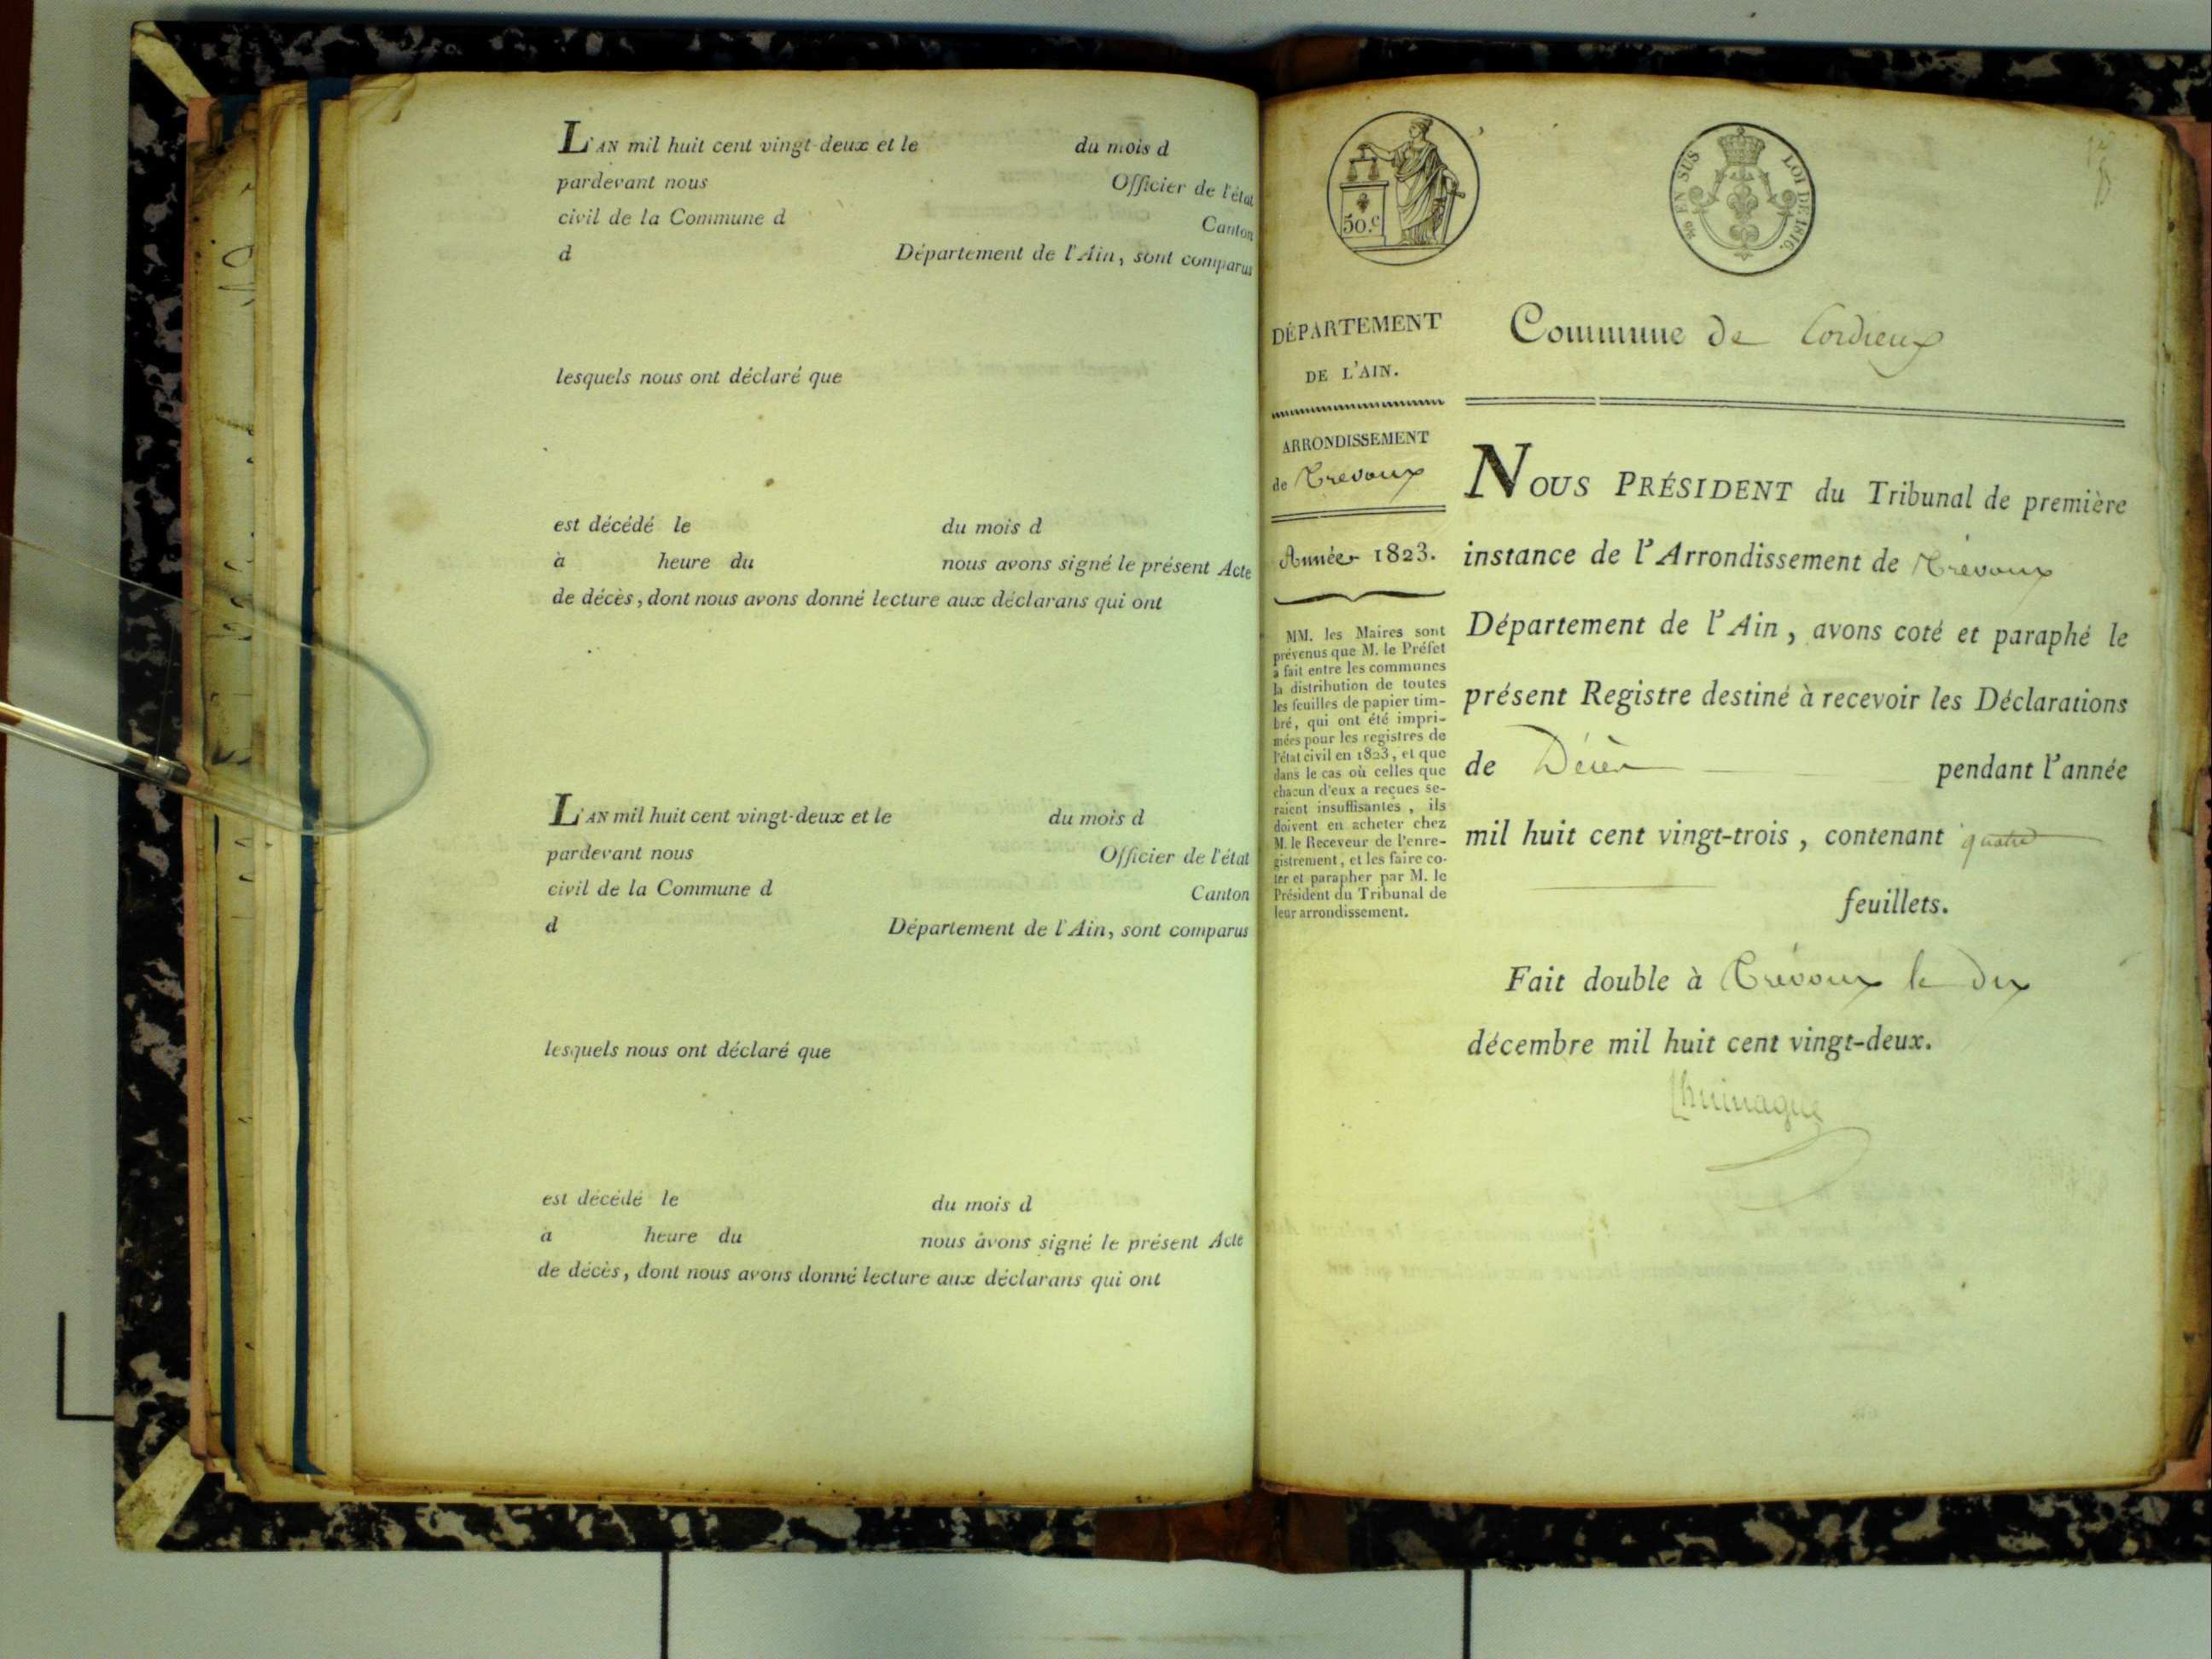 L'AN mil huit cent vingt-deux et le du mois d
pardevant nous Officier de l'état
civil de la Commune d Canton
d Département de l'Ain, sont comparus
lesquels nous ont déclaré que
est décédé le du mois d
à heure du nous avons signé le présent Acte
de décès, dont nous avons donné lecture aux déclarans qui ont
L'AN mil huit cent vingt-deux et le du mois d
pardevant nous Officier de l'état
civil de la Commune d Canton
d Département de l'Ain, sont comparus
lesquels nous ont déclaré que
est décédé le du mois d
à heure du nous avons signé le présent Acte
de décès, dont nous avons donné lecture aux déclarans qui ont
50.c
EN SUS LOI DE 1816.
DÉPARTEMENT
DE L'AIN.
ARRONDISSEMENT
de Trevoux
Année 1823.
MM. les Maires sont
prévenus que M. le Préfet
a fait entre les communes
la distribution de toutes
les feuilles de papier tim-
bré, qui ont été impri-
mées pour les registres de
l'état civil en 1823, et que
dans le cas où celles que
chacun d'eux a reçues se-
raient insuffisantes, ils
doivent en acheter chez
M. le Receveur de l'enre-
gistrement, et les faire co-
ter et parapher par M. le
Président du Tribunal de
leur arrondissement.
Commune de Cordieux
NOUS PRÉSIDENT du Tribunal de première
instance de l'Arrondissement de Trévoux
Département de l'Ain, avons coté et paraphé le
présent Registre destiné à recevoir les Déclarations
de Décès pendant l'année
mil huit cent vingt-trois, contenant quatre
feuillets.
Fait double à Trévoux le dix
décembre mil huit cent vingt-deux.